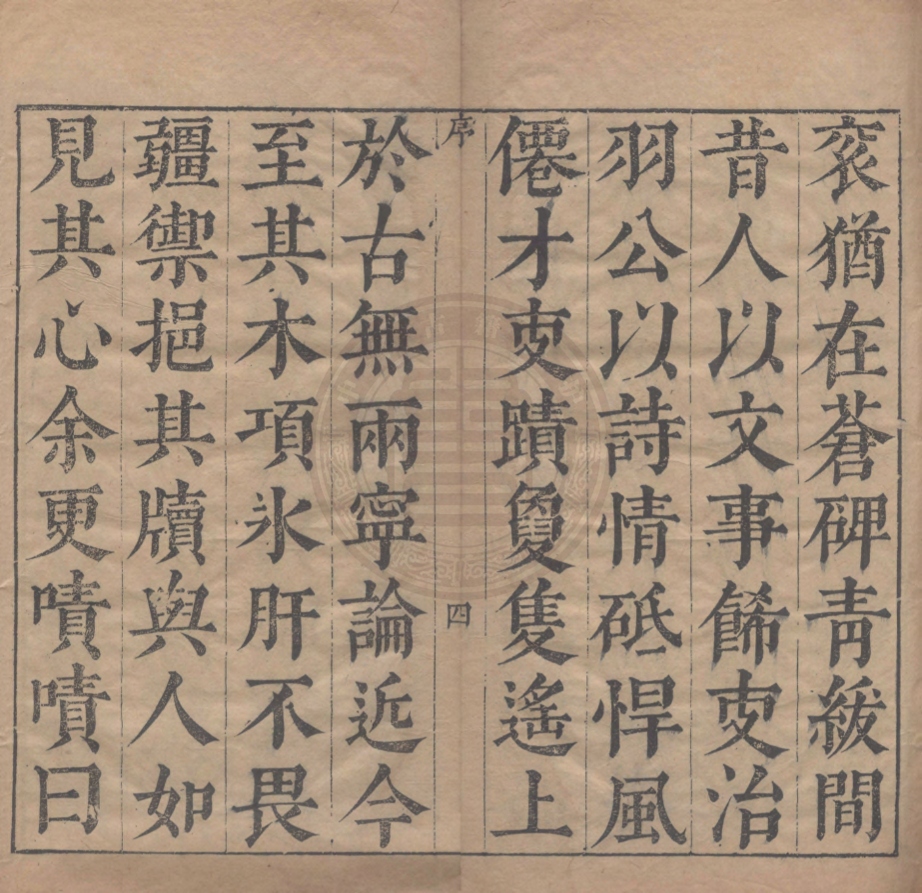 衮猶在蒼碑青紱間
昔人以文事餙吏治
羽公以詩情砥悍風
僊才吏蹟敻隻遙上
序
四
於古無兩寧論近今
至其木項氷肝不畏
疆禦挹其牘與人如
見其心余更嘖嘖曰